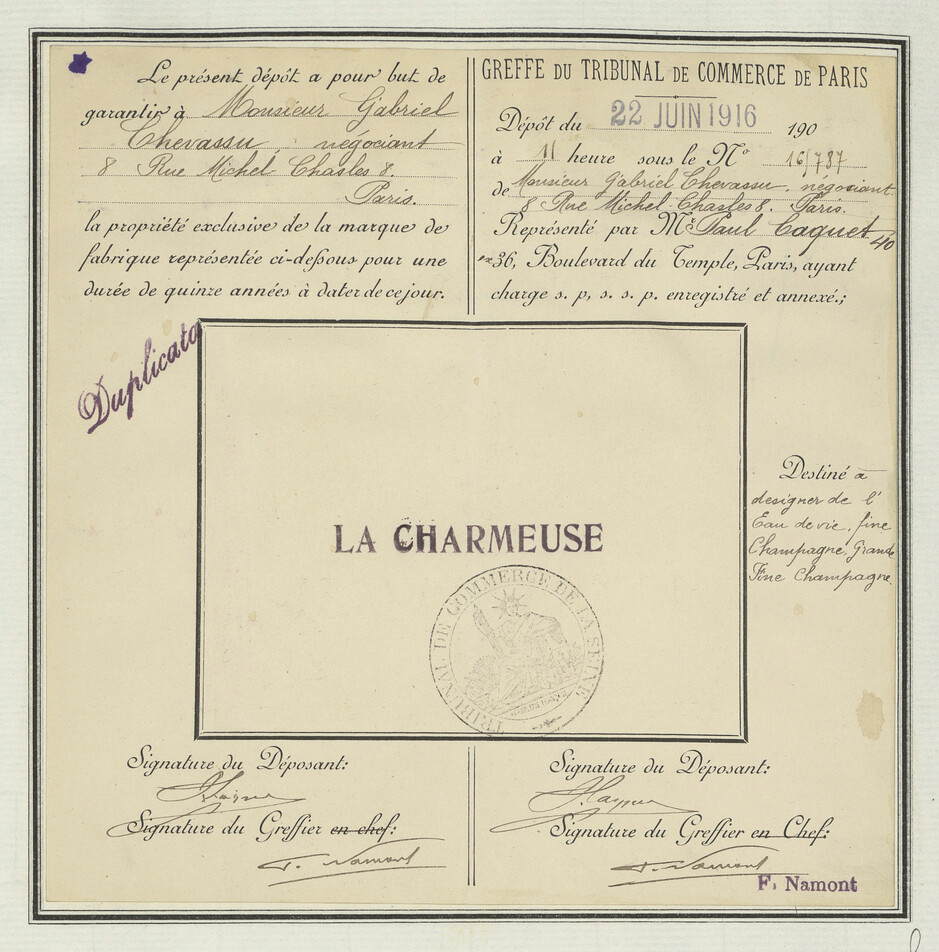 Le présent dépôt a pour but de
garantir à Monsieur Gabriel
Chevassu, négociant
8 Rue Michel Chasles 8.
Paris.
la propriété exclusive de la marque de
fabrique représentée ci-dessous pour une
durée de quinze années à dater de ce jour.
GREFFE DU TRIBUNAL DE COMMERCE DE PARIS
Dépôt du 22 JUIN 1916 190
à 11 heure sous le No 16/787
de Monsieur Gabriel Chevassu, négociant
8 Rue Michel Chasles 8. Paris.
Représenté par Mr Paul Caquet
36, Boulevard du Temple, Paris, ayant
charge s. p, s. s. p. enregistré et annexé.;
Duplicata
LA CHARMEUSE
TRIBUNAL DE COMMERCE DE LA SEINE
Destiné à
designer de l'
Eau de vie, fine
Champagne, Grande
Fine Champagne.
Signature du Déposant:
Signature du Greffier en chef:
F. Namont
Signature du Déposant:
Signature du Greffier en Chef:
F. Namont
F. Namont